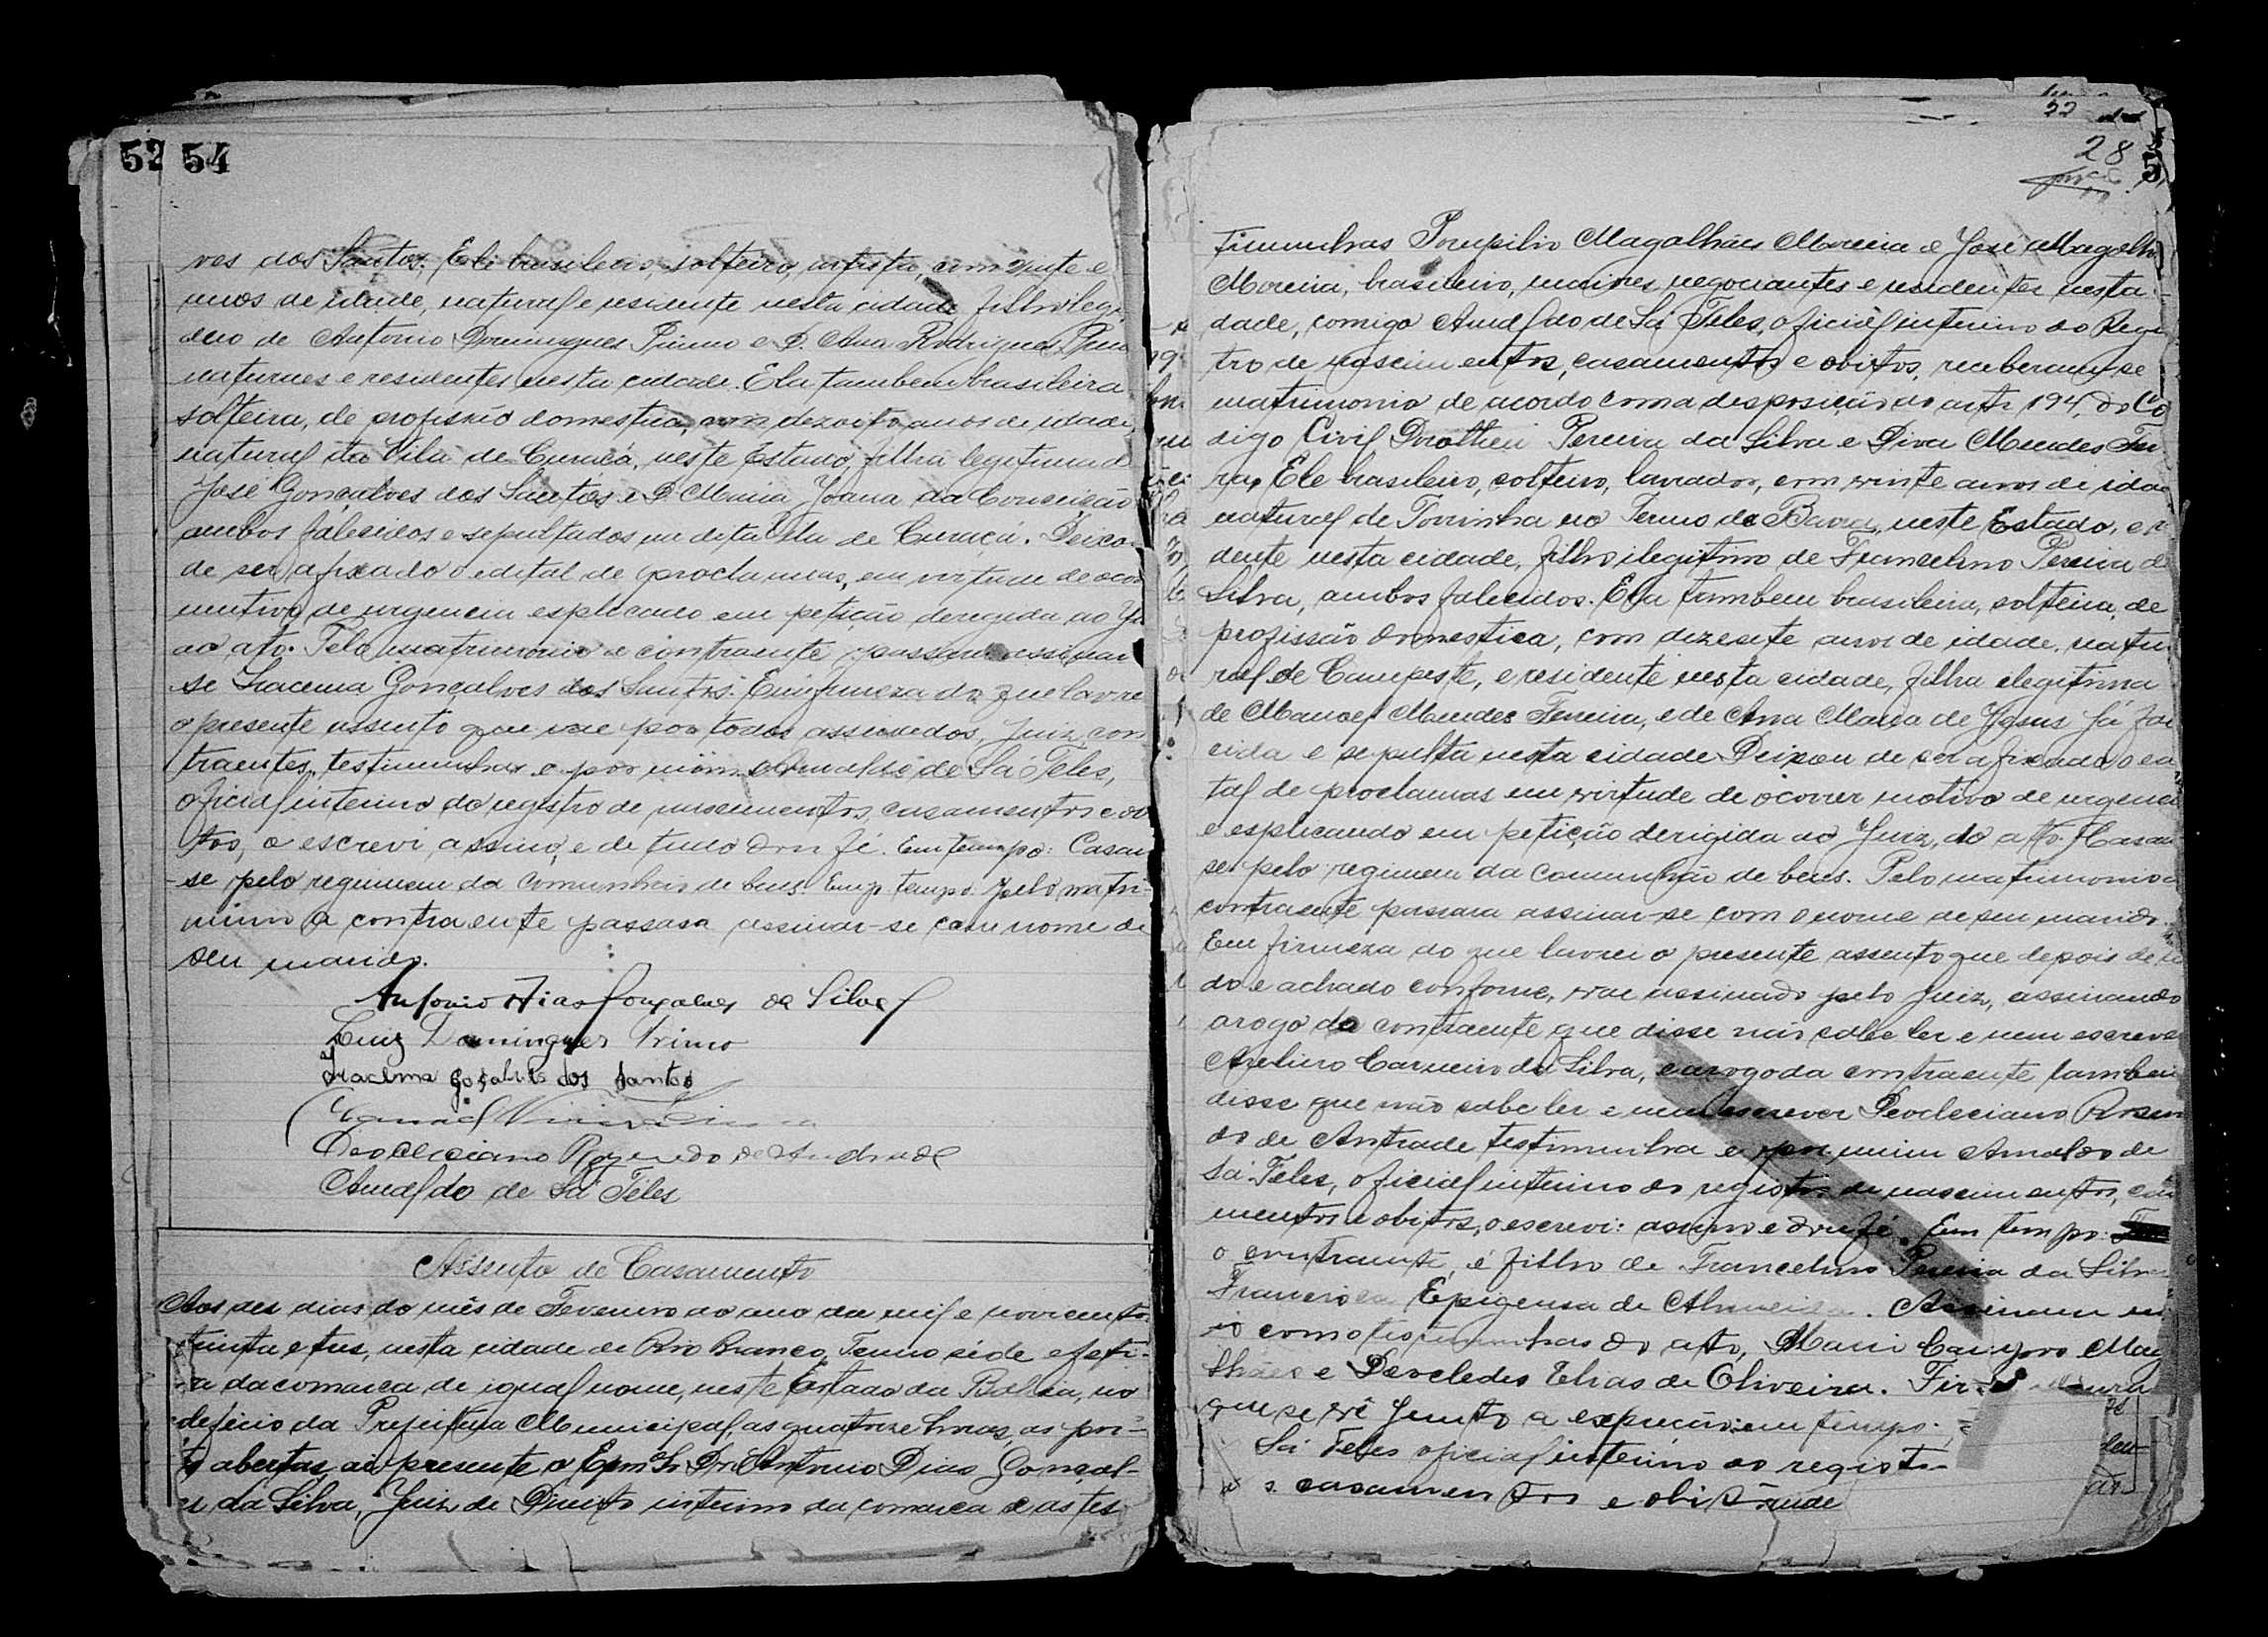 52 54
ves dos Santos. Ele brasileiro, solteiro, artista, com vinte e
anos de idade, natural e residente nesta cidade filho legi
de Antonio Domingues Primo e D. Ana Rodrigues
naturaes e residentes nesta cidade. Ela tambem brasileira
solteira, de profissão domestica, com dezoito anos de idade,
natural da Vila de Curaçá, neste Estado, filha legitima d
José Gonçalves dos Santos e D. Maria Joana da Conceição
ambos falecidos e sepultados na dita Vila de Curaçá. Deixo
de ser afixado o edital de proclamas, em virtude de ocor
motivo de urgencia esplicado em petição deregida ao Ju
ao ato. Pelo matrimonio a contraente passará assinar
se Iracema Gonçalves dos Santos. Em firmeza do que lavrei
o presente assento que vae por todos assinados, Juiz, con
traentes, testimunhas e por mim Arnaldo de Sá Teles,
oficial interino do registro de nascimentos, casamentos e obi
tos, o escrevi, assino, e de tudo dou fé. Em tempo: Casam
se pelo regimem da comunhão de bens. Em tempo. Pelo matri-
monio a contraente passara assinar-se com nome de
seu marido.
Antonio Dias Gonçalves da Silva
Luiz Domingues Primo
Iracema Goçalves dos Santos
Deocleciano Rozendo de Andrade
Arnaldo de Sá Teles
Assento de Casamento
Aos dez dias do mês de Fevereiro do ano de mil e novecentos
trinta e tres, nesta cidade de Rio Branco, Termo séde efeti-
va da comarca de igual nome, neste Estado da Bahia, no
edeficio da Prefeitura Municipal, as quatorze horas, as por-
tas abertas, ai presente o Exmo Sr. Dr. Antonio Dias Gonçal-
ves da Silva, Juiz de Direito interino da comarca e as tes
22
28
5
timunhas Pompilio Magalhães Moreira e José Magalhã
Moreira, brasileiro, maiores, negociantes e residentes nesta
dade, comigo Arnaldo de Sá Teles, oficial interino do Regis
tro de nascimentos, casamentos e obitos, receberam-se
matrimonio de acordo com a desposição do artº 194, do Có
digo Civil Pereira da Silva e Diva Mendes Fer
ra, Ele brasileiro, solteiro, lavrador, com vinte anos de idad
natural de Torrinha no Termo da Barra, neste Estado, e r
dente nesta cidade, filho ilegitimo de Francelino Pereira d
Silva, ambos falecidos. Ela tambem brasileira, solteira, de
profissão domestica, com dezesete anos de idade, natu
ral de Campeste, e residente nesta cidade, filha elegitima
de Manoel Mendes Ferreira, e de Ana Maria de Jesus já fal
cida e sepulta nesta cidade Deixou de ser afixado o ed
tal de proclamas em virtude de ocorrer motivo de urgenci
e esplicando em petição derigida ao Juiz, do ato. Casam
se pelo regimem da comunhão de bens. Pelo matrimonio a
contraente passara assinar-se com o nome de seu marido.
Em firmeza do que lavrei o presente assento que depois de li
do e achado conforme, vae assinado pelo Juiz, assinando
arogo do contraente que disse não sabe ler e nem escrever
Avelino Carneiro da Silva, e arogo da contraente tambem
disse que não sabe ler e nem escrever Deocleciano Rosen
do de Antrade testimunha e por mim Arnaldo de
Sá Teles, oficial interino do registro de nascimentos, cas
mentos e obitos, o escrevi: assino e dou fé. Em tempo:
o contraente, é filho de Francelino Pereira da Silva
Francisca Epigensa de Almeida. Assinam
como testimunhas do ato, Mario Campos Mag
lhães e Devcledes Elias de Oliveira.
que se vê junto a expreção: em tempo.
Sá Teles oficial interino do registr
casamentos e obi